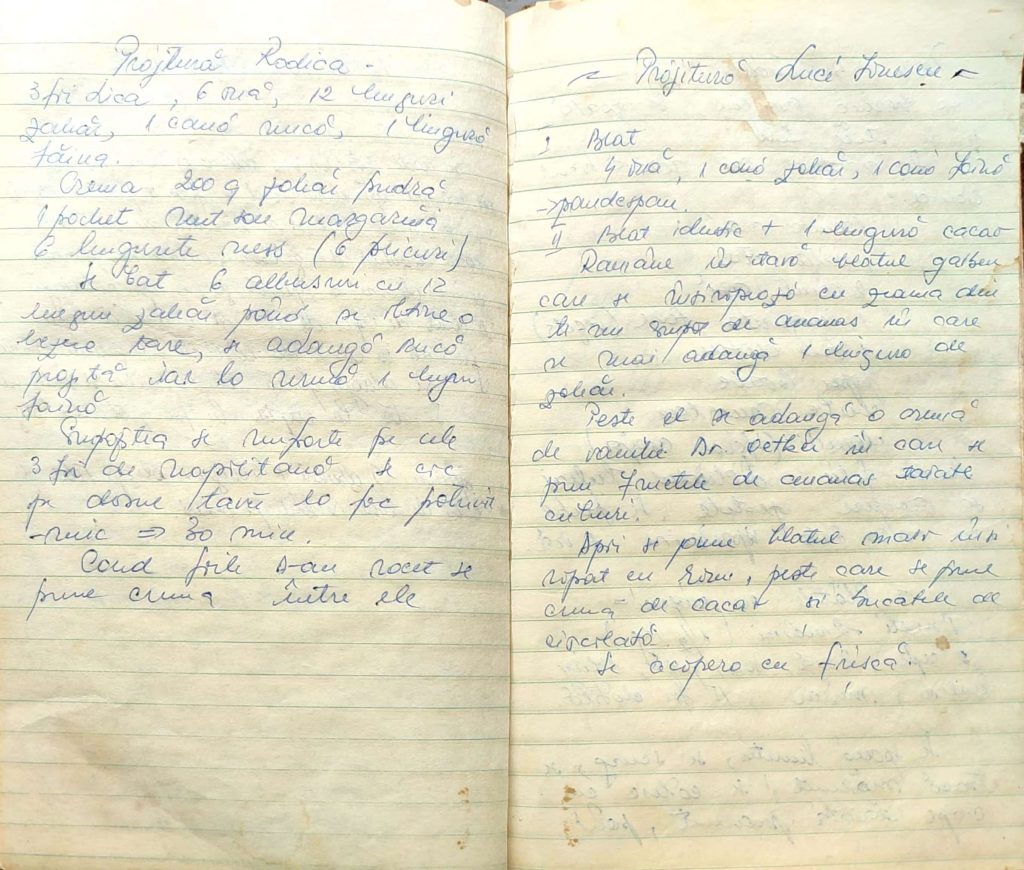 Prăjitură Rodica -
3 foi Lica, 6 ouă, 12 linguri
zahăr, 1 cană nucă, 1 lingură
făină.
Crema 200 g zahăr pudră
1 pachet unt sau margarină
6 lingurițe ness (6 plicuri)
Se bat 6 albușuri cu 12
linguri zahăr până se obține o
bezea tare, se adaugă nucă
prăjită iar la urmă 1 lingură
făină
Compoziția se împarte pe cele
3 foi de napolitană se coc
pe dosul tăvii la foc potrivit
-mic => 30 min.
Când foile s-au răcit se
pune crema între ele
~ Prăjitură Luci Ionescu ~
I Blat
4 ouă, 1 cană zahăr, 1 cană făină
->pandișpan.
II Blat identic + 1 lingură cacao
Rămâne în tavă blatul galben
care se însiropează cu zeama din
compot de ananas în care
se mai adaugă 1 lingură de
zahăr.
Peste el se adaugă o cremă
de vanilie Dr. Oetker în care se
pun fructele de ananas tăiate
cuburi.
Apoi se pune blatul maro însi
ropat cu rom, peste care se pune
cremă de cacao și bucățele de
ciocolată.
Se acoperă cu frișcă.